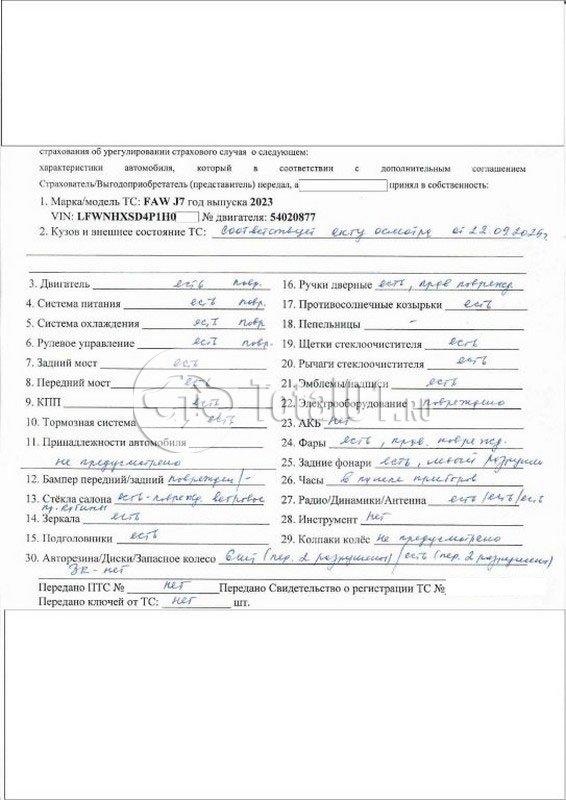 страхования об урегулировании страхового случая о следующем:
характеристики автомобиля, который в соответствии с дополнительным соглашением
Страхователь/Выгодоприобретатель (представитель) передал, а принял в собственность:
1. Марка/модель ТС: FAW J7 год выпуска 2023
VIN: LFWNHXSD4P1H0 № двигателя: 54020877
2. Кузов и внешнее состояние ТС: соответствует акту осмотра от 22.09.2024г
3. Двигатель есть повр.
4. Система питания есть повр.
5. Система охлаждения есть повр
6. Рулевое управление есть повр.
7. Задний мост есть
8. Передний мост есть
9. КПП есть
10. Тормозная система есть
11. Принадлежности автомобиля
не предусмотрено
12. Бампер передний/задний поврежден/-
13. Стёкла салона есть - поврежд. ветровое
пр. кабины
14. Зеркала есть
15. Подголовники есть
16. Ручки дверные есть, прав поврежд.
17. Противосолнечные козырьки есть
18. Пепельницы -
19. Щетки стеклоочистителя есть
20. Рычаги стеклоочистителя есть
21. Эмблемы/надписи есть
22. Электрооборудование повреждено
23. АКБ нет
24. Фары есть, прав. поврежд.
25. Задние фонари есть, левый разрушен
26. Часы в панели приборов
27. Радио/Динамики/Антенна есть/есть/есть
28. Инструмент нет
29. Колпаки колёс не предусмотрено
30. Авторезина/Диски/Запасное колесо 6 шт (пер. 2 разрушены)/есть (пер. 2 разрушены)
ЗК - нет
Передано ПТС № нет Передано Свидетельство о регистрации ТС №
Передано ключей от ТС: нет шт.
Total01.RU